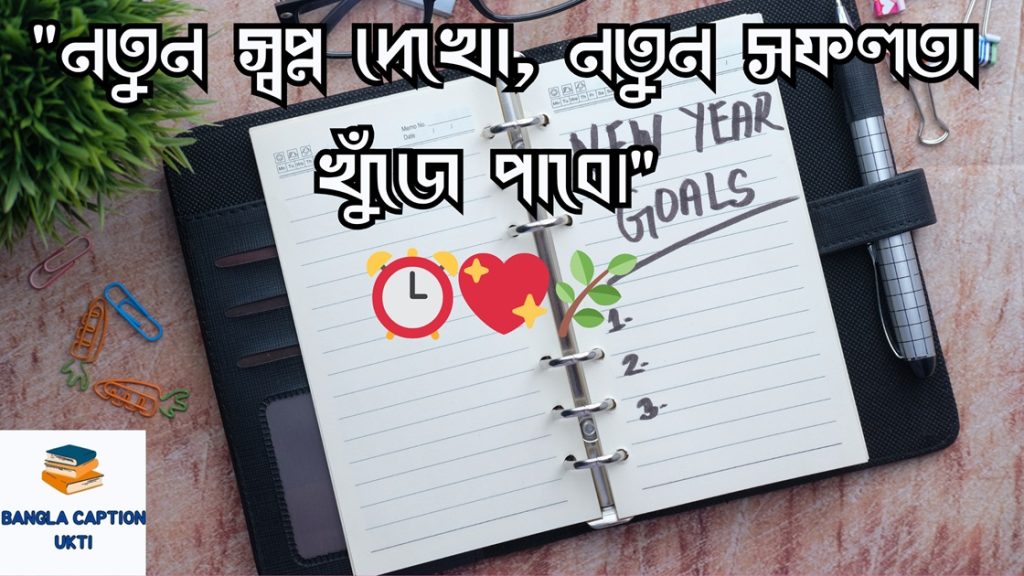 "নতুন স্বপ্ন দেখো, নতুন সফলতা
খুঁজে পাবো"
Memo No.
Date / /
Mo Tu We Th Fr Sa Su
NEW YEAR
GOALS
1-
2-
3-
BANGLA CAPTION
UKTI